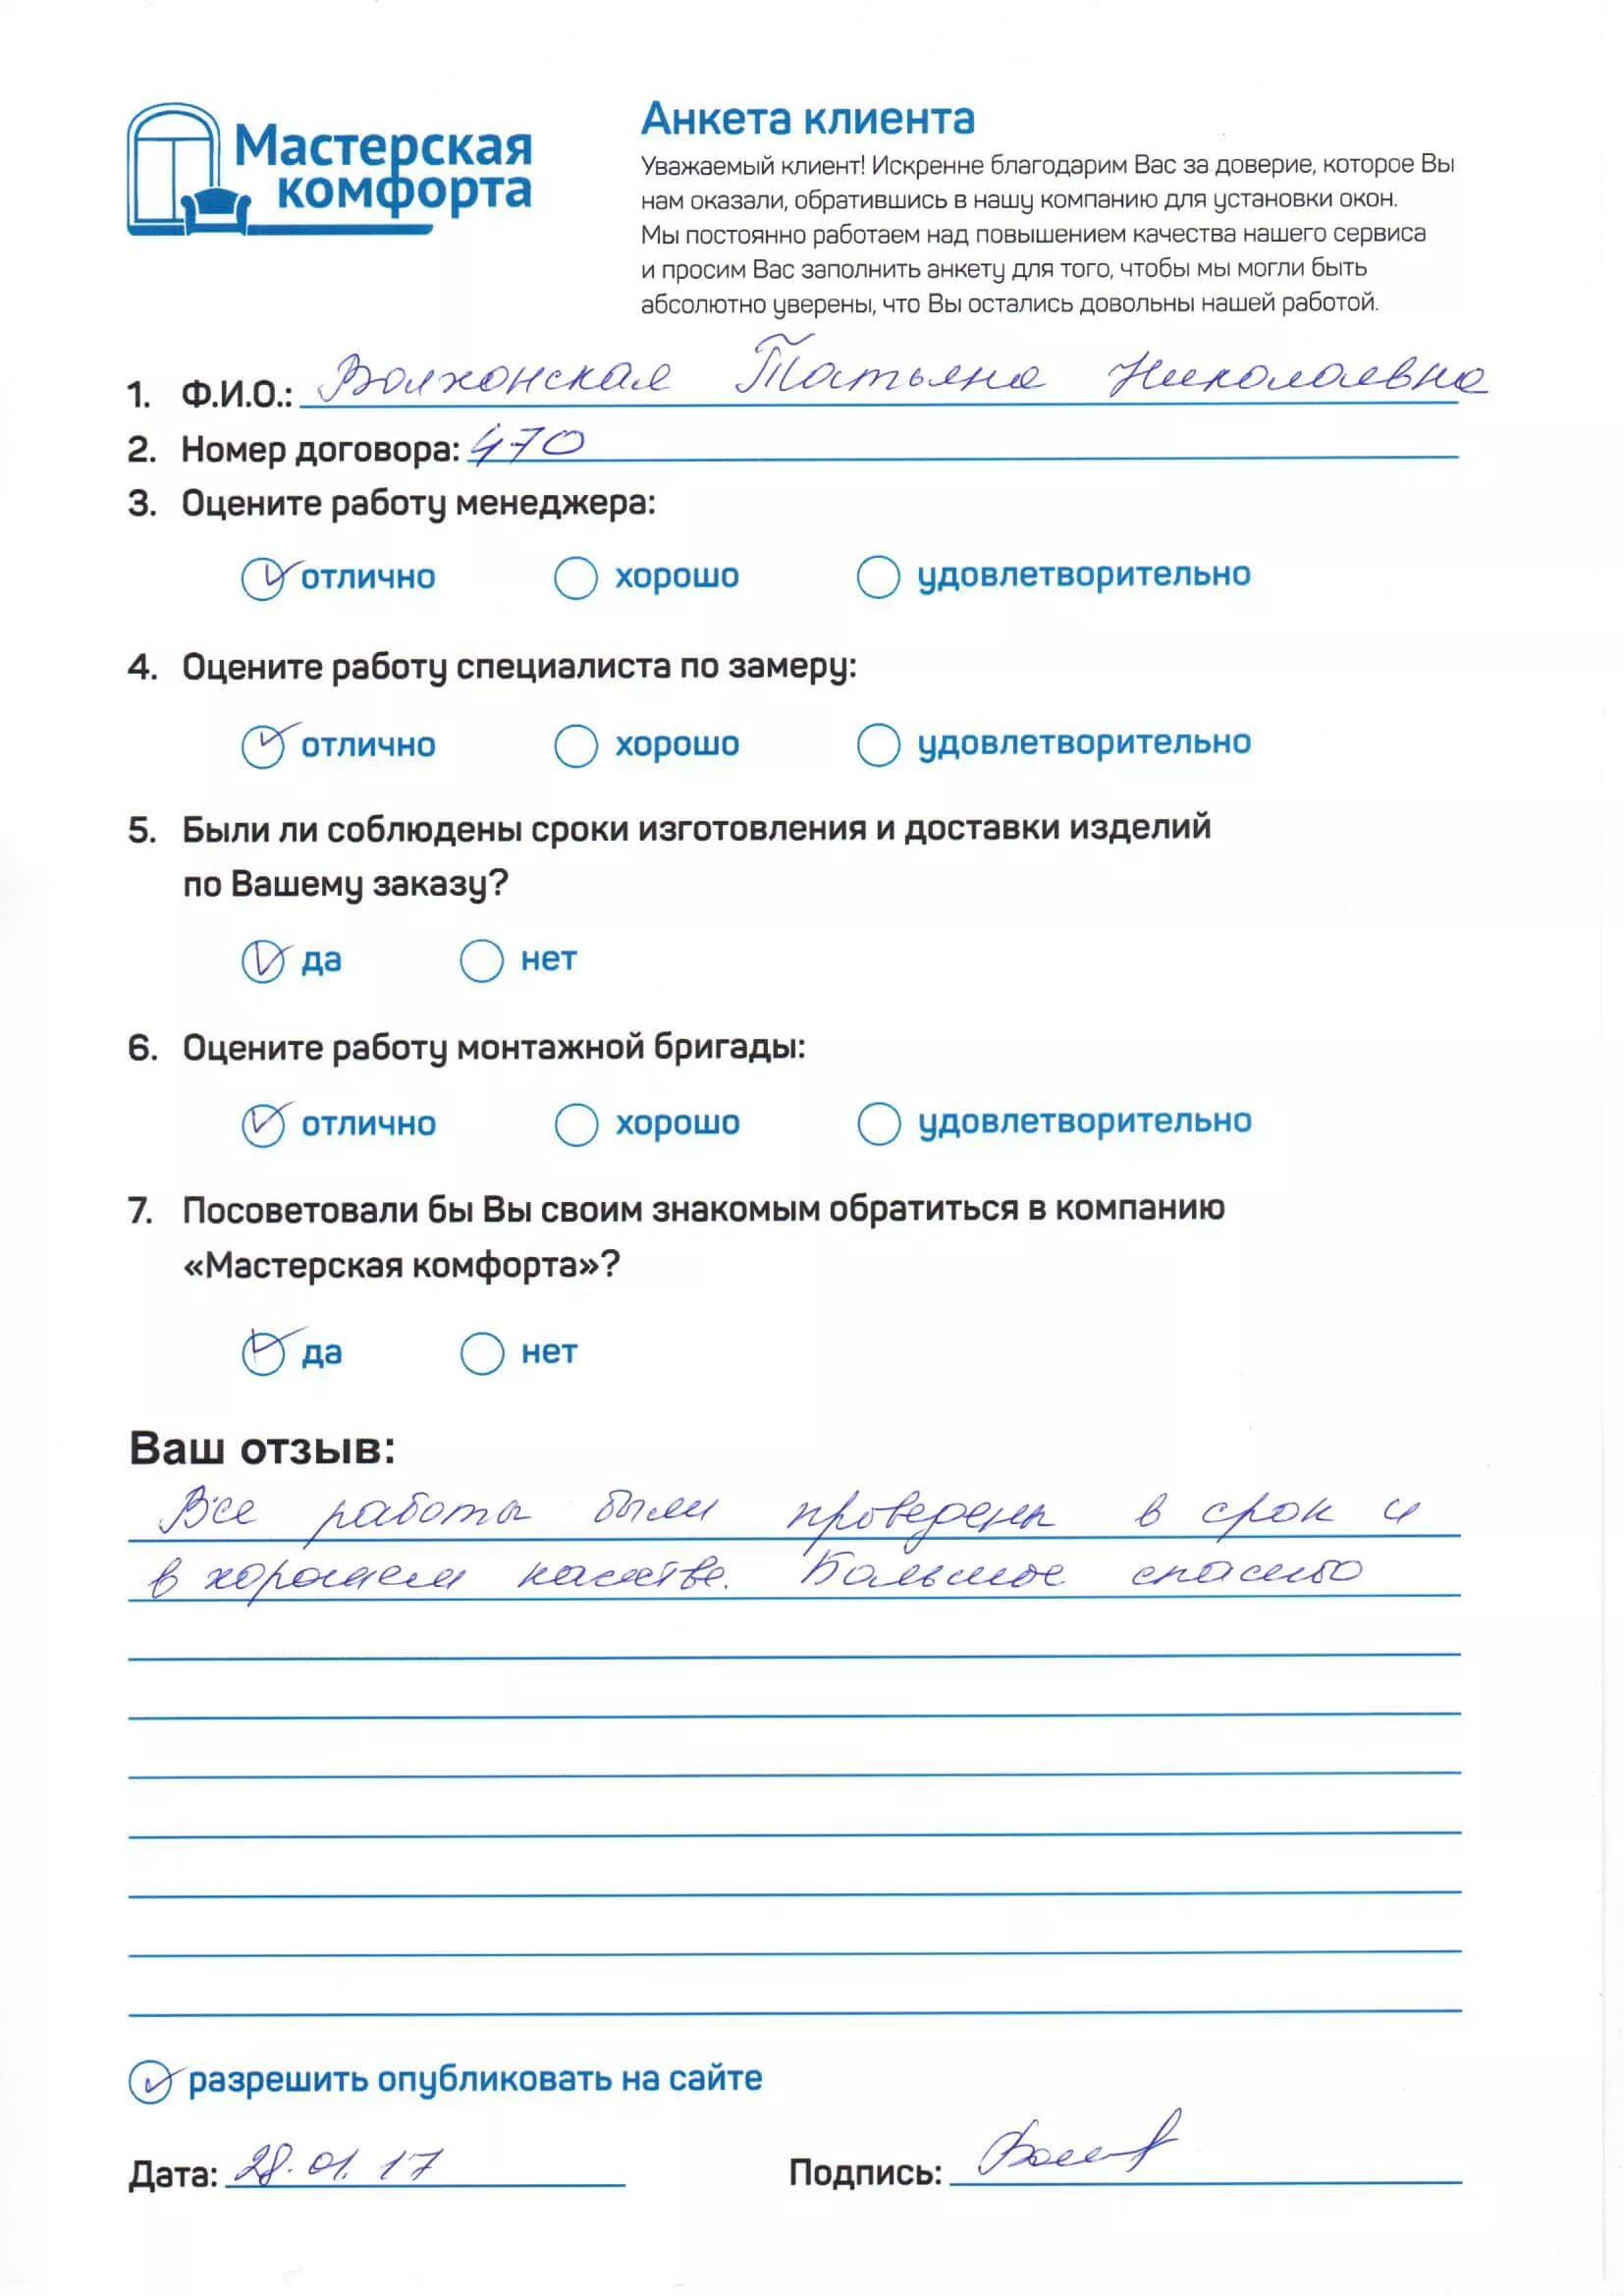 Мастерская
комфорта
Анкета клиента
Уважаемый клиент! Искренне благодарим Вас за доверие, которое Вы
нам оказали, обратившись в нашу компанию для установки окон.
Мы постоянно работаем над повышением качества нашего сервиса
и просим Вас заполнить анкету для того, чтобы мы могли быть
абсолютно уверены, что Вы остались довольны нашей работой.
1. Ф.И.О.: Волхонская Татьяна Николаевна
2. Номер договора: 470
3. Оцените работу менеджера:
отлично хорошо удовлетворительно
4. Оцените работу специалиста по замеру:
отлично хорошо удовлетворительно
5. Были ли соблюдены сроки изготовления и доставки изделий
по Вашему заказу?
да нет
6. Оцените работу монтажной бригады:
отлично хорошо удовлетворительно
7. Посоветовали бы Вы своим знакомым обратиться в компанию
«Мастерская комфорта»?
да нет
Ваш отзыв:
Все работы были проведены в срок и
в хорошем качестве. Большое спасибо
разрешить опубликовать на сайте
Дата: 28.01.17 Подпись: